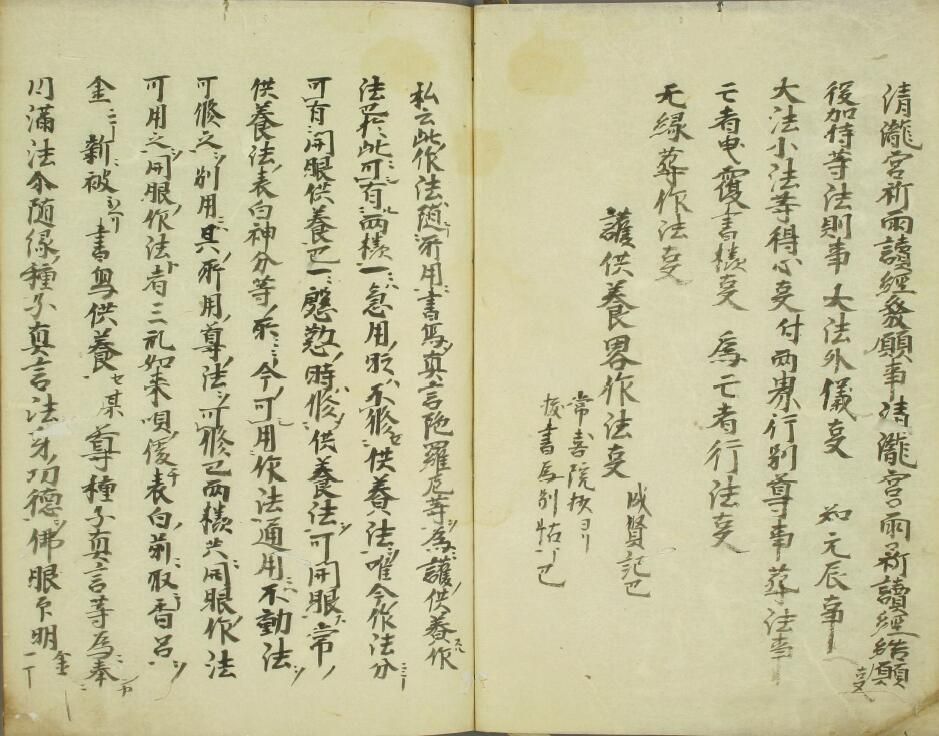 清瀧宮祈雨讀經發願事 清瀧宮雨祈讀經結願事
後加持等法則事 大法外儀事 知元辰事
大法小法等得心事 付両界行別尊事 葬法事
亡者曳覆書樣事 為亡者行法事
无縁葬作法事
護供養畧作法事 成賢記已
常喜院抄ヨリ
被書馬別帖了已
私云此作法随所用書写真言陀羅尼等為護供養作
法也於此可有両樣一急用時不修供養法唯今作法分
可有開眼供養已一慇懃時修供養法可開眼常
供養法表白神分等今可用作法通用不動法
可修之別用其所用尊法可修已両樣共開眼作法
可用之開眼作法者三礼如来唄後表白前取香呂
金二丁 新被 書寫供養セ某尊種子真言等為奉
円満法尓随縁種子真言法身功德佛眼印明 金一丁